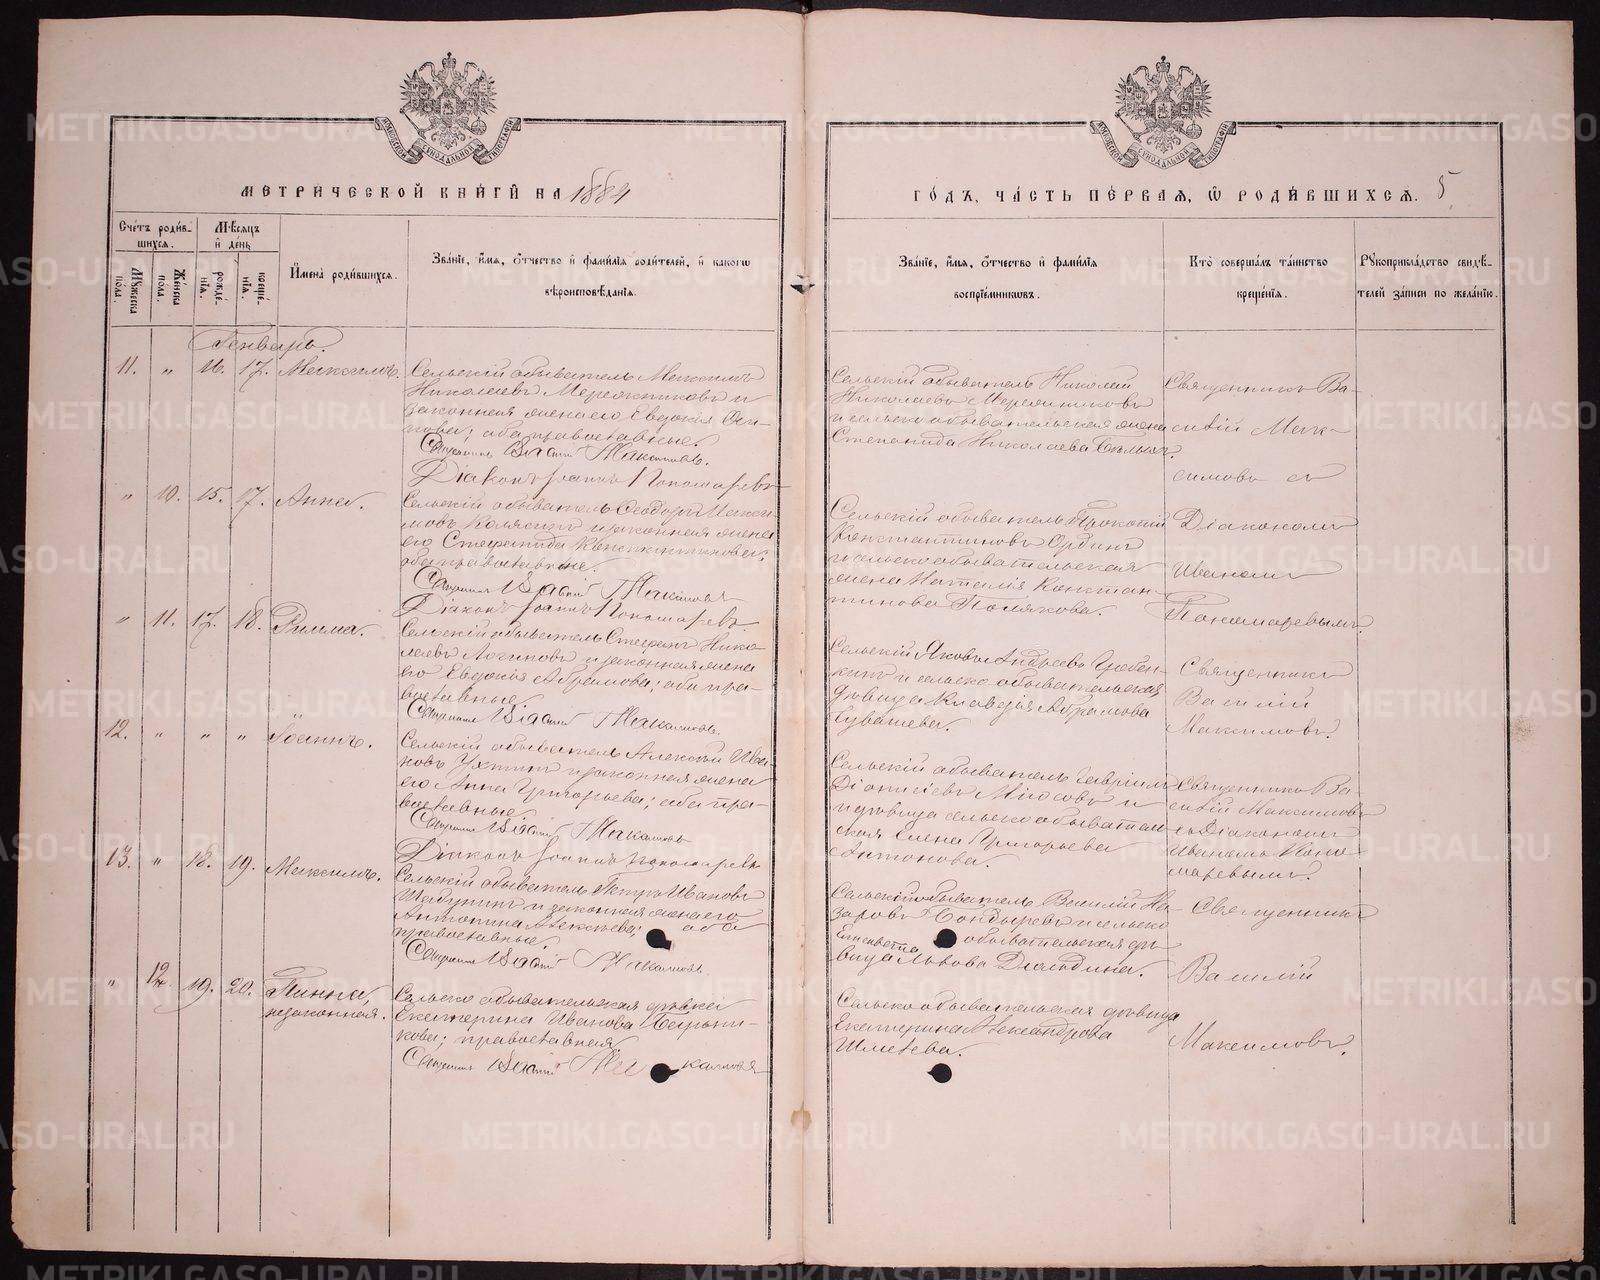 МЕТРИЧЕСКОЙ КНИГИ НА 1884
ГОДЪ, ЧАСТЬ ПЕРВАЯ, Ѡ РОДИВШИХСЯ. 5
МОСКОВСКОЙ СѴНОДАЛЬНОЙ ТИПОГРАФІИ
МОСКОВСКОЙ СѴНОДАЛЬНОЙ ТИПОГРАФІИ
Счетъ родившихся.
Мужеска пола.
Женска пола.
Мѣсяцъ и день
рождѣнія.
крещенія.
Имена родившихся.
Званіе, имя, отчество и фамилія родителей, и какого
вѣроисповѣданія.
Званіе, имя, отчество и фамилія
воспріемниковъ.
Кто совершалъ таинство
крещенія.
Рукоприкладство свидѣ-
телей записи по желанію.
Генварь.
11. " 16. 17. Максимъ.
Сельскій обыватель Максимъ
Николаевъ Мережниковъ и
законная жена его Евдокія Оси-
пова; оба православные.
Священникъ Василій Максимовъ.
Діаконъ Іоаннъ Пономаревъ
Сельскій обыватель Николай
Николаевъ Мережниковъ
и сельско обывательская жена
Степанида Николаева
Священникъ Ва-
силій Мак-
симовъ съ
" 10. 15. 17. Анна.
Сельскій обыватель Ѳеодоръ Макси-
мовъ Колясинъ и законная жена
его Стефанида Константинова;
оба православные.
Священникъ Василій Максимовъ
Діаконъ Іоаннъ Пономаревъ
Сельскій обыватель Прокопій
Константиновъ Ординъ
и сельско обывательская
жена Наталія Констан-
тинова Полякова.
Діакономъ
Иваномъ
Пономаревымъ.
" 11. 17. 18. Римма.
Сельскій обыватель Стефанъ Нико-
лаевъ Логиновъ и законная жена
его Евдокія Абрамова; оба пра-
вославные
Священникъ Василій Максимовъ.
Сельскій Яковъ Андреевъ Гребен-
кинъ и сельско обывательская
дѣвица Клавдія Абрамова
Чувашева.
Священникъ
Василій
Максимовъ.
12. " " " Іоаннъ.
Сельскій обыватель Алексѣй Ива-
новъ Ухтинъ и законная жена
его Анна Григорьева; оба пра-
вославные
Священникъ Василій Максимовъ
Діаконъ Іоаннъ Пономаревъ
Сельскій обыватель Гавріилъ
Діонисіевъ и
дѣвица сельско обыватель-
ская Елена Григорьева
Антонова.
Священникъ Ва-
силій Максимовъ
съ Діакономъ
Иваномъ Поно-
маревымъ.
13. " 18. 19. Максимъ.
Сельскій обыватель Петръ Ивановъ
и законная жена его
Антонина Алексѣева; оба
православные
Священникъ Василій Максимовъ.
Сельскій обыватель Василій На-
заровъ Бондыревъ и сельско
обывательская дѣ-
Елисавета
вица Львова
Священникъ
Василій
Максимовъ.
" 12. 19. 20. Пинна,
незаконная.
Сельско обывательская дѣвка
Екатерина Иванова
кова; православная
Священникъ Василій Максимовъ
Сельско обывательская дѣвица
Екатерина Александрова
Шмелева.
METRIKI.GASO-URAL.RU